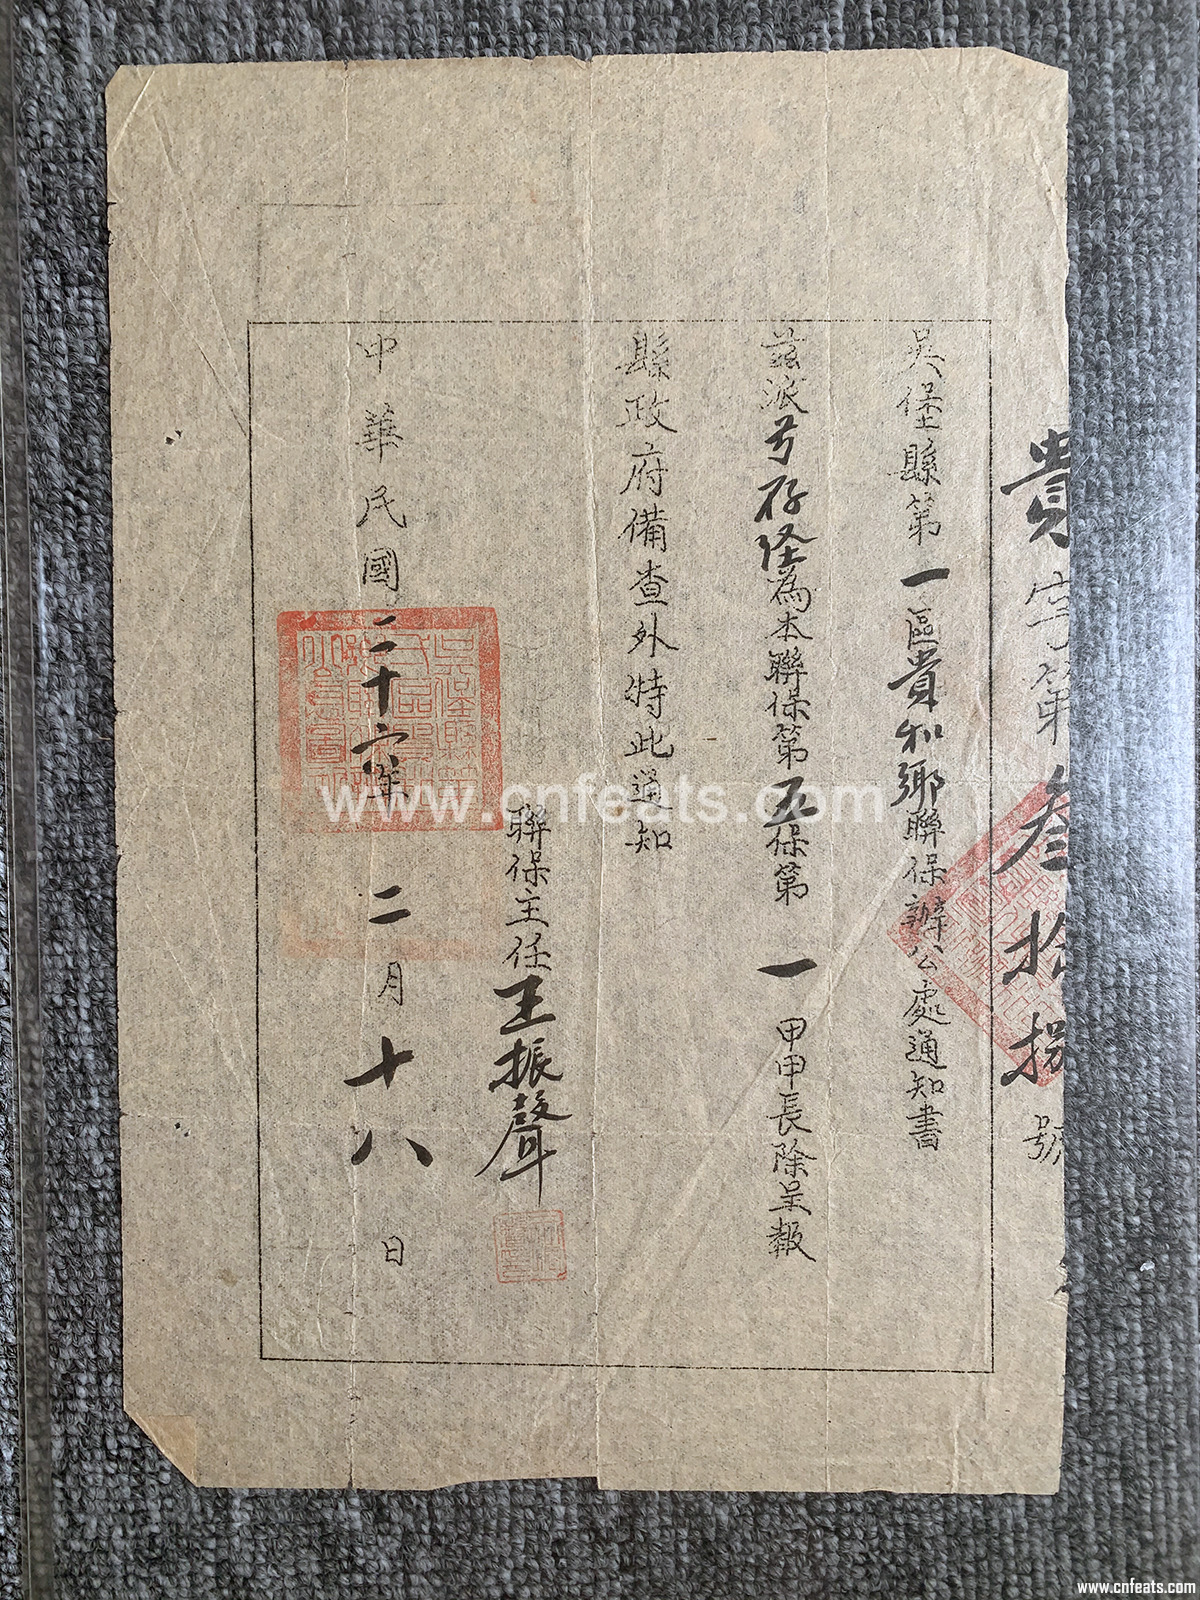 貴字第叁拾捌號
吳堡縣第一區貴和鄉聯保辦公處通知書
茲派弓存經為本聯保第五保第一甲甲長除呈報
縣政府備查外特此通知
聯保主任王振聲
中華民國二十六年二月十八日
www.cnfeats.com
www.cnfeats.com